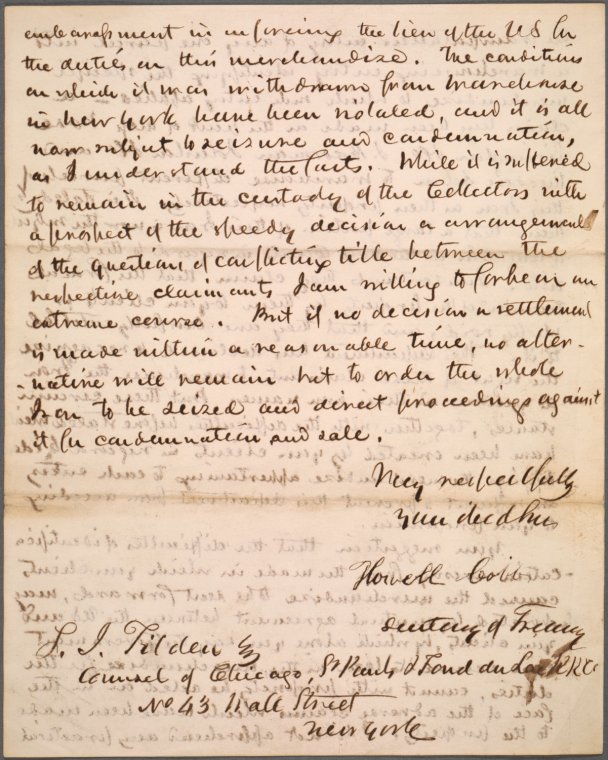 embarrassment in inforcing the lien of the US for
the duties on this merchandize. The conditions
on which it was withdrawn from Warehouse
in New York have been violated, and it is all
now subject to seizure and condemnation,
as I understand the facts. While it is suffered
to remain in the custody of the Collectors with
a prospect of the speedy decision or arrangement
of the questions of conflicting title between the
respective claimants I am willing to forbear an
extreme course. But if no decision or settlement
is made within a reasonable time, no alter-
-native will remain but to order the whole
Iron to be seized and direct proceedings against
it for condemnation and sale.
Very respectfully
Your obed Ser
Howell Cobb
Secretary of Treasury
S. J. Tilden Esq
Counsel of Chicago, St Pauls & Fond du Lac R R Co
No 43 Wall Street
New York